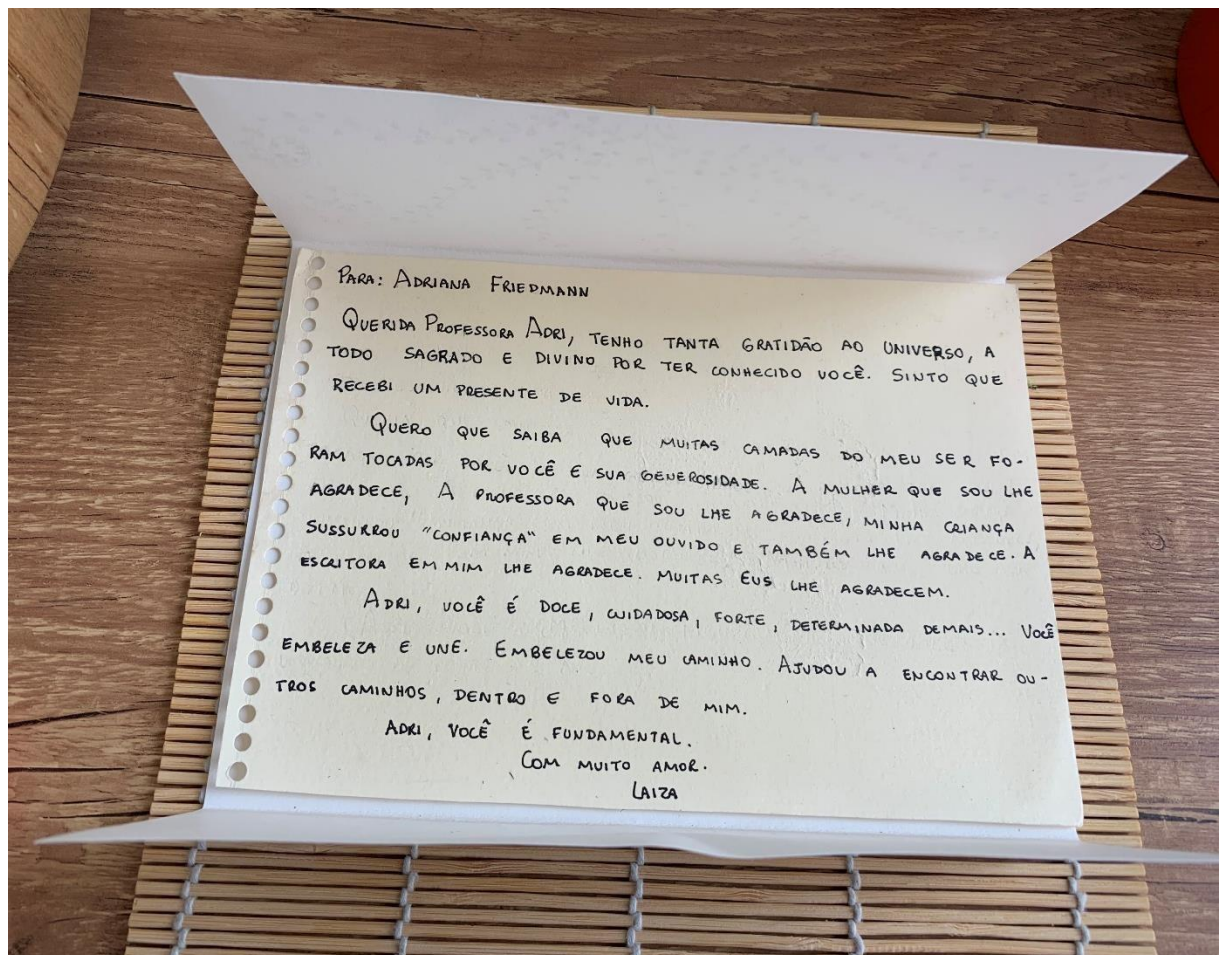 PARA: ADRIANA FRIEDMANN
QUERIDA PROFESSORA ADRI, TENHO TANTA GRATIDÃO AO UNIVERSO, A
TODO SAGRADO E DIVINO POR TER CONHECIDO VOCÊ. SINTO QUE
RECEBI UM PRESENTE DE VIDA.
QUERO QUE SAIBA QUE MUITAS CAMADAS DO MEU SER FO-
RAM TOCADAS POR VOCÊ E SUA GENEROSIDADE. A MULHER QUE SOU LHE
AGRADECE, A PROFESSORA QUE SOU LHE AGRADECE, MINHA CRIANÇA
SUSSURROU "CONFIANÇA" EM MEU OUVIDO E TAMBÉM LHE AGRADECE. A
ESCRITORA EM MIM LHE AGRADECE. MUITAS EUS LHE AGRADECEM.
ADRI, VOCÊ É DOCE, CUIDADOSA, FORTE, DETERMINADA DEMAIS... VOCÊ
EMBELEZA E UNE. EMBELEZOU MEU CAMINHO. AJUDOU A ENCONTRAR OU-
TROS CAMINHOS, DENTRO E FORA DE MIM.
ADRI, VOCÊ É FUNDAMENTAL.
COM MUITO AMOR.
LAIZA